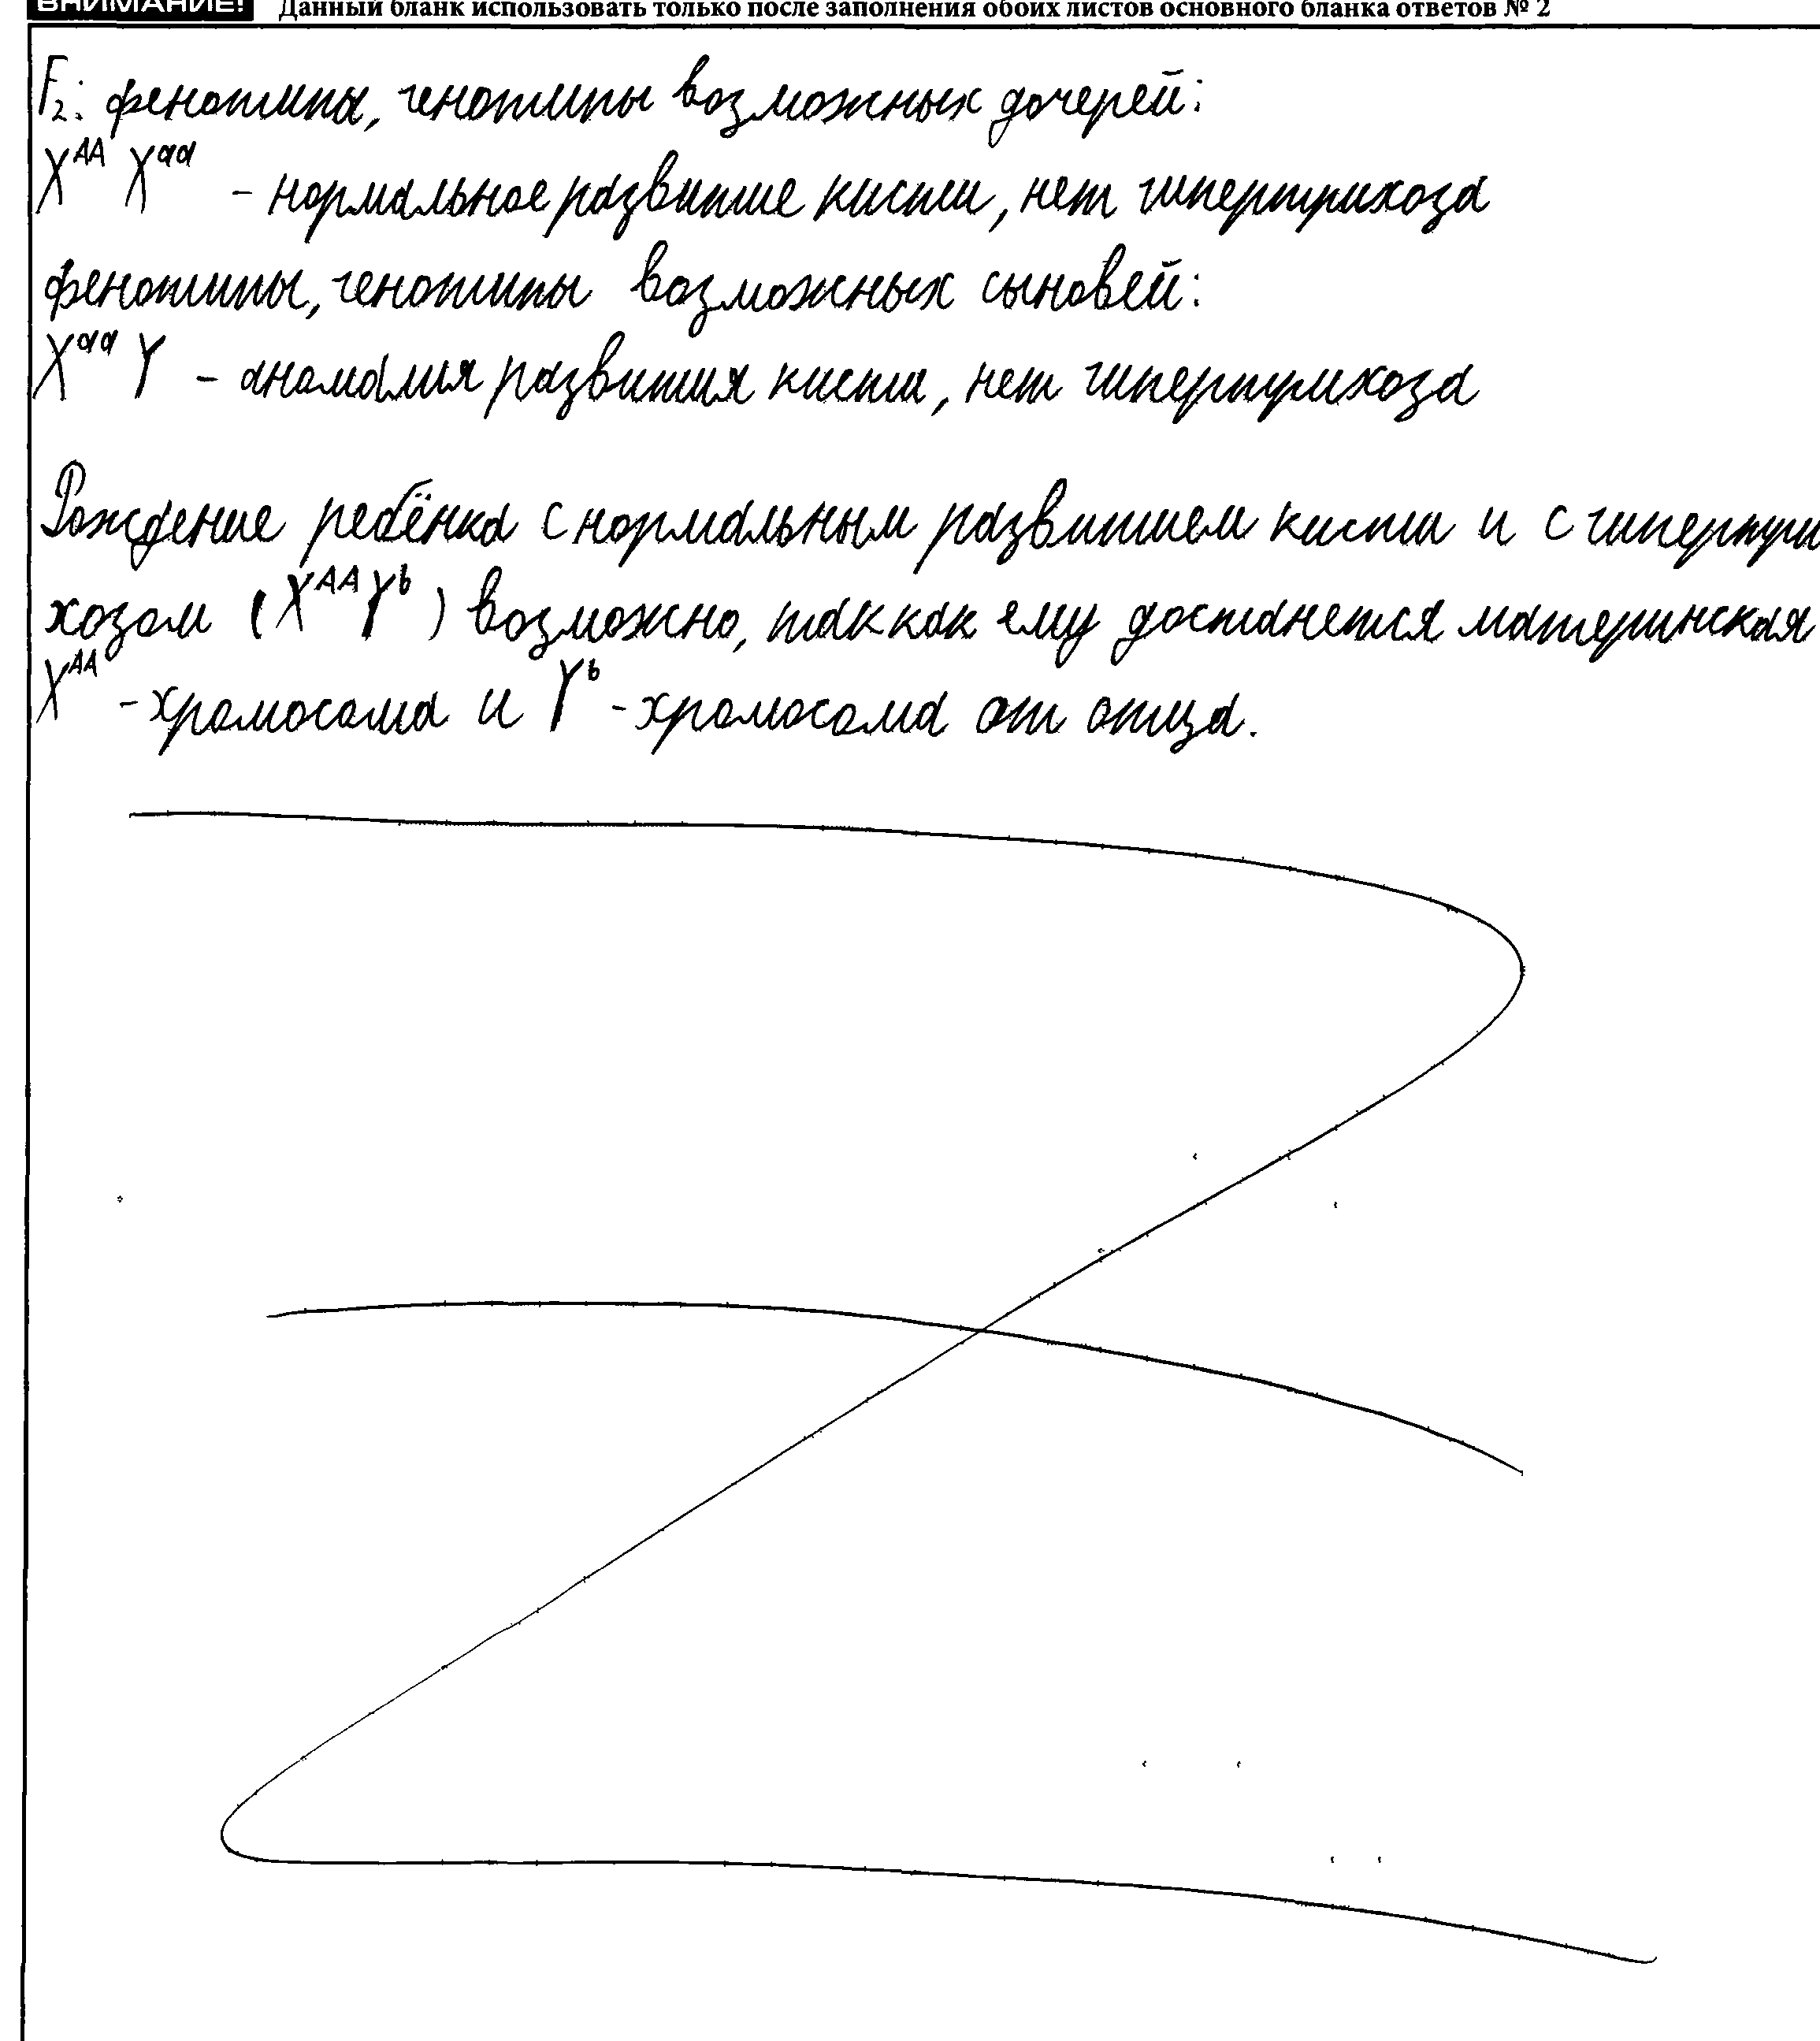 ВНИМАНИЕ! Данный бланк использовать только после заполнения обоих листов основного бланка ответов № 2
F₂: фенотипы, генотипы возможных дочерей:
Xᴬᴬ Xᵃᵃ - нормальное развитие кисти, нет гипертрихоза
фенотипы, генотипы возможных сыновей:
Xᵃᵃ Y - аномалия развития кисти, нет гипертрихоза
Рождение ребёнка с нормальным развитием кисти и с гипертри
хозом (XᴬᴬYᵇ) возможно, так как ему достанется материнская
Xᴬᴬ - хромосома и Yᵇ - хромосома от отца.